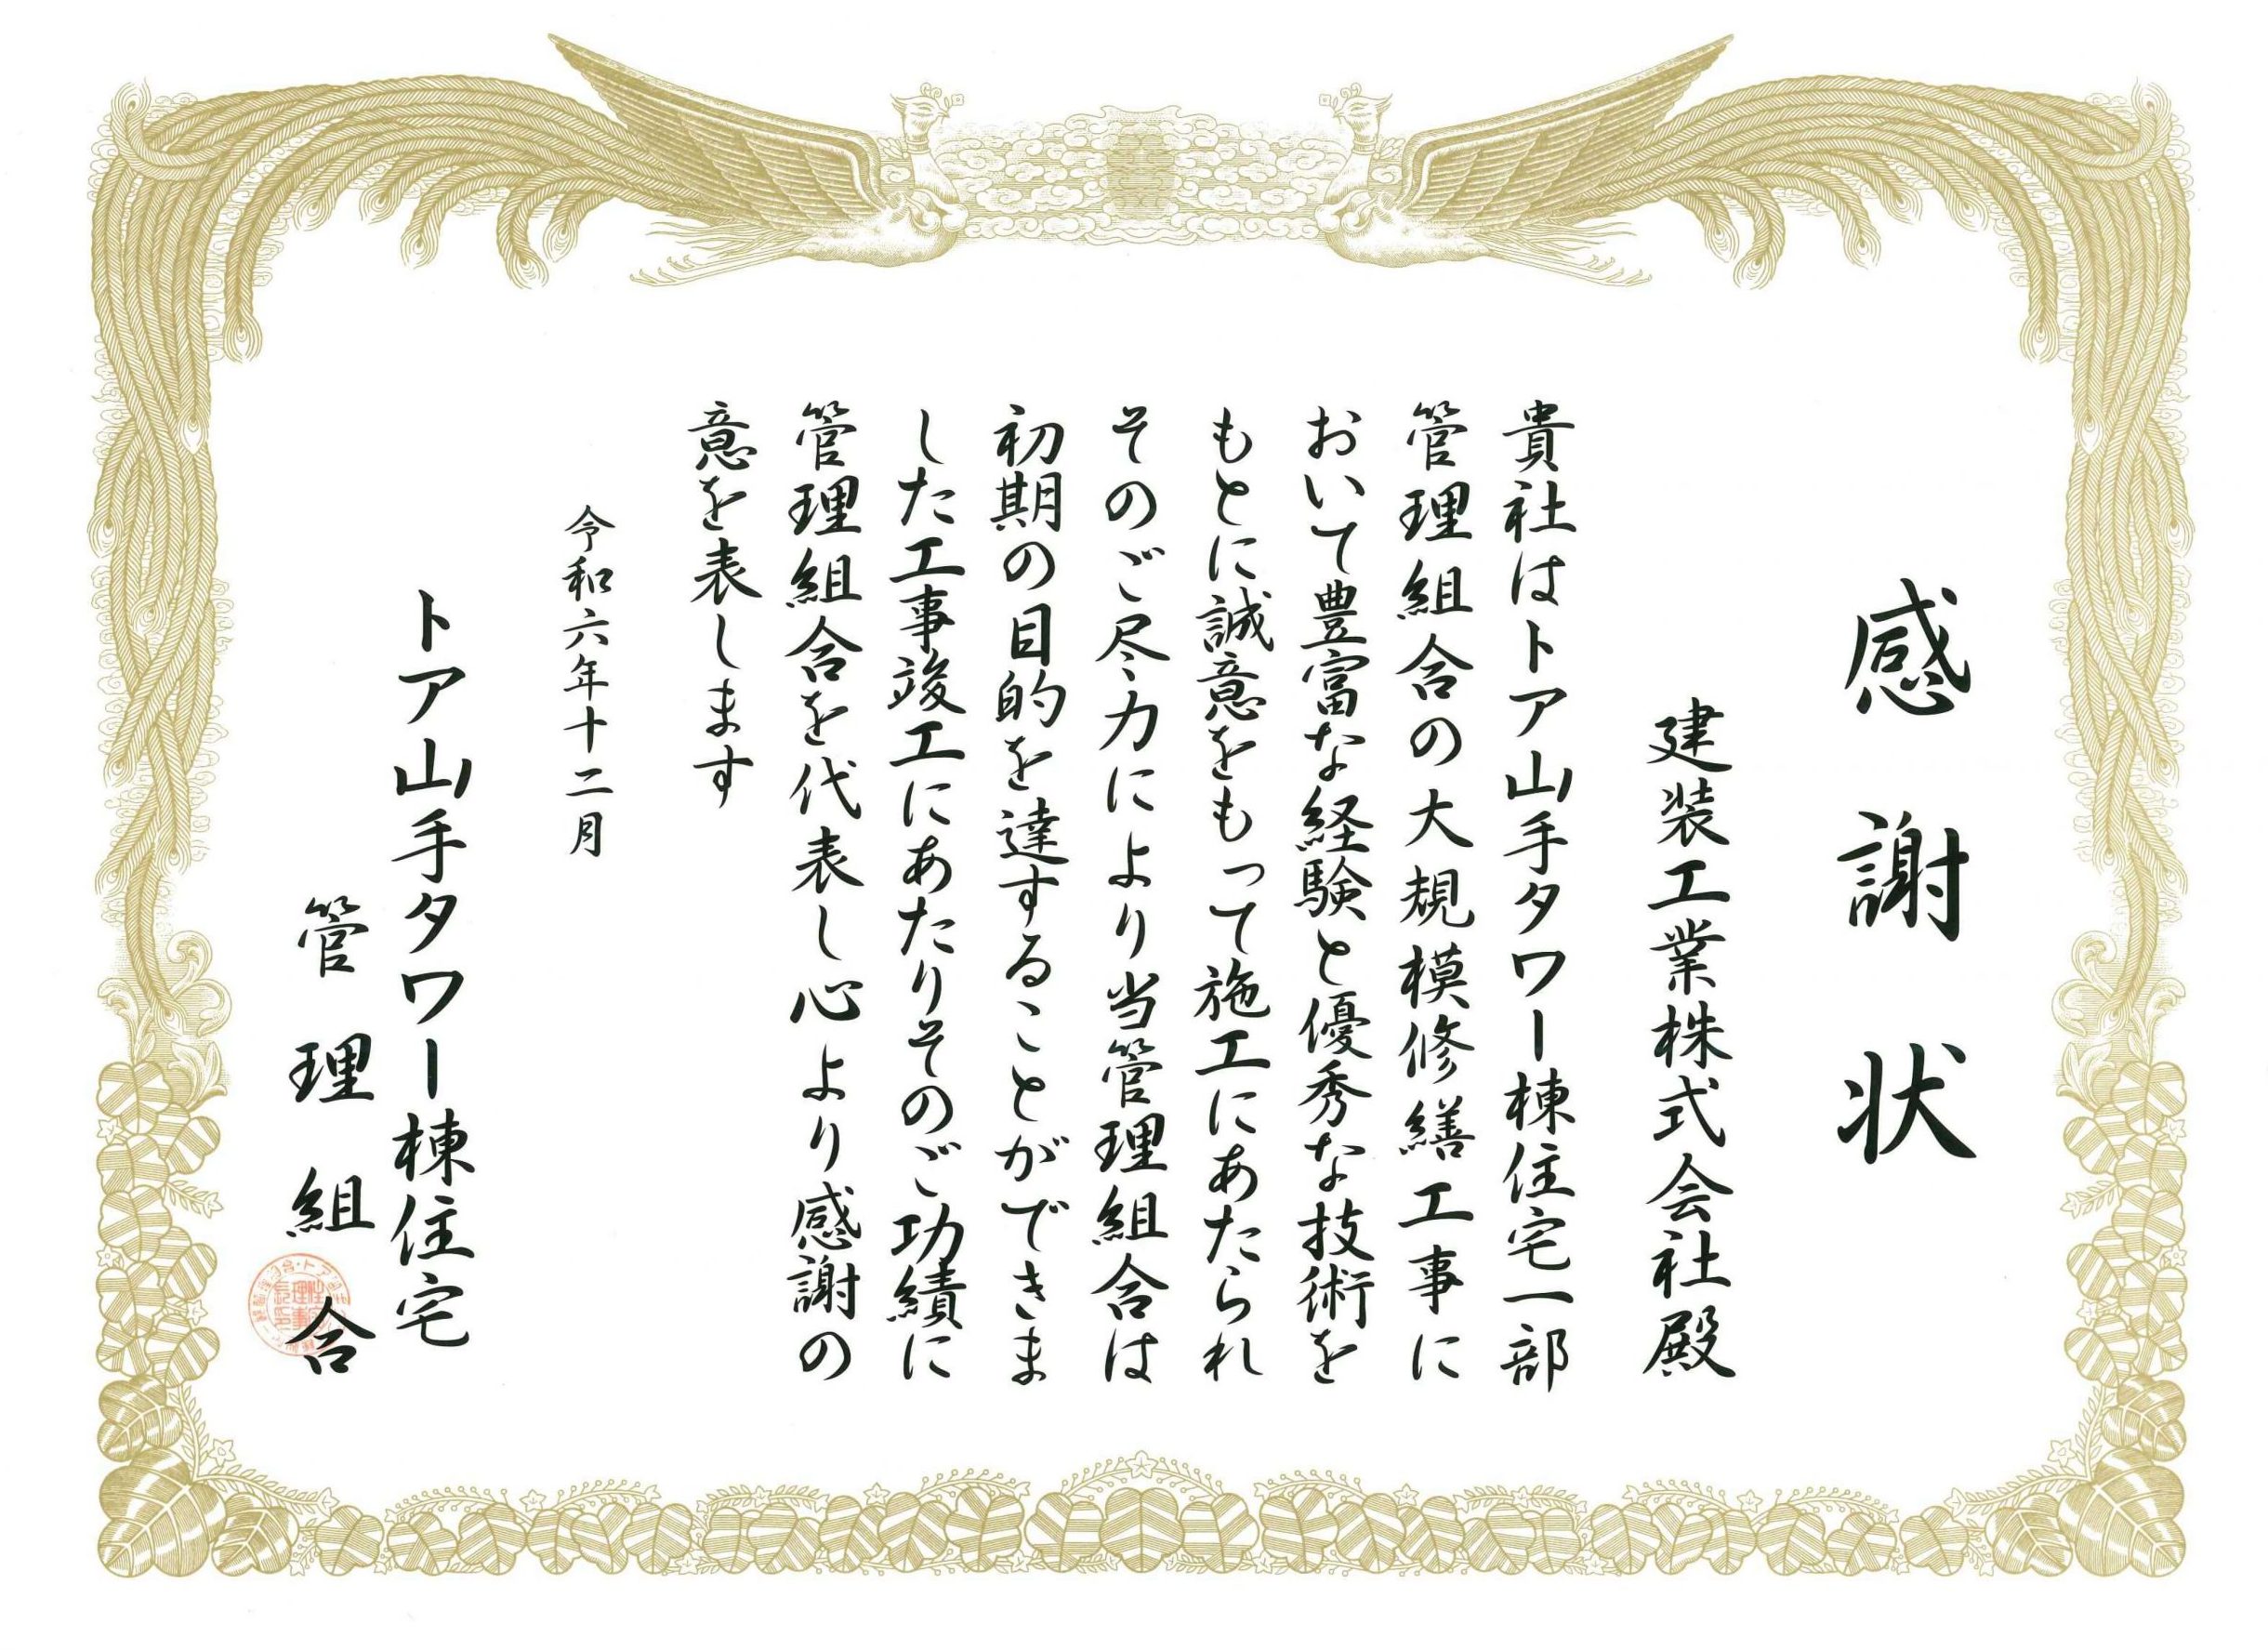 感謝状
建装工業株式会社殿
貴社はトア山手タワー棟住宅一部
管理組合の大規模修繕工事に
おいて豊富な経験と優秀な技術を
もとに誠意をもって施工にあたられ
そのご尽力により当管理組合は
初期の目的を達することができま
した工事竣工にあたりそのご功績に
管理組合を代表し心より感謝の
意を表します
令和六年十二月
トア山手タワー棟住宅
管理組合